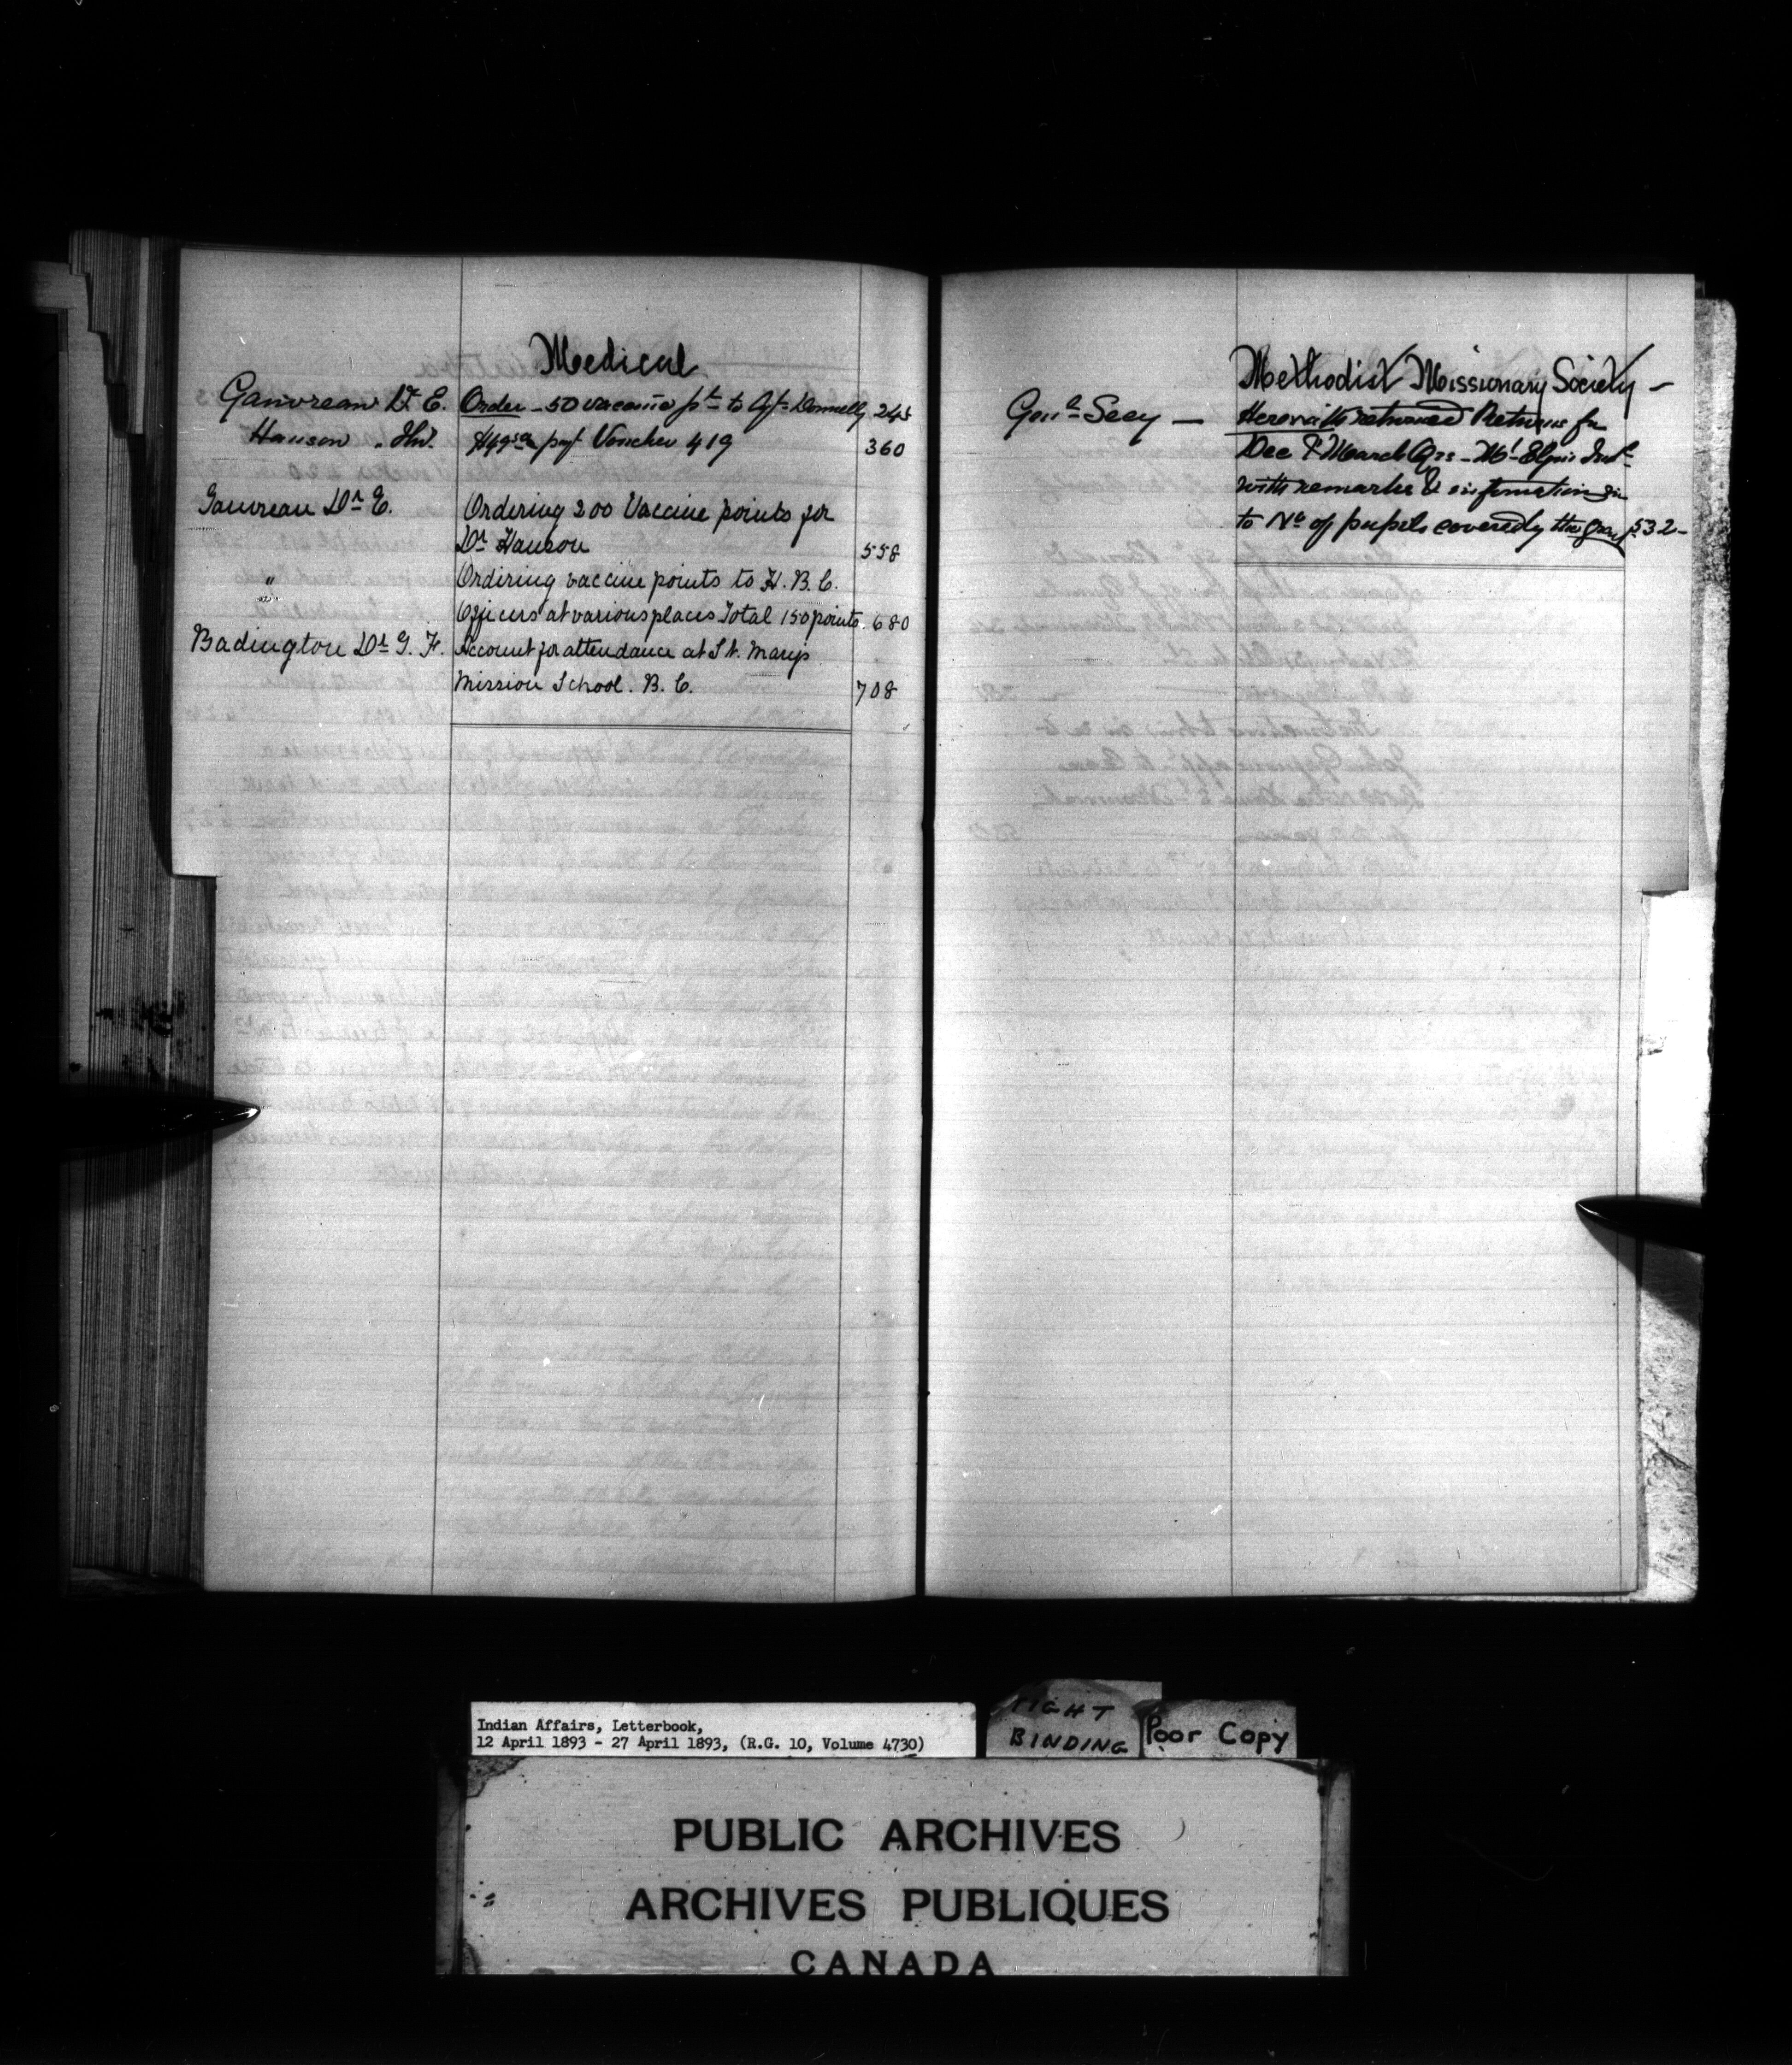 Medical
Gauvreau Dr E. Order - 50 vaccine pts to Agt Donnelly 245
Hanson pay Voucher 419 360
Gauvreau Dr E. Ordering 200 Vaccine points for
Dr Hanson 558
" Ordiring vaccine points to H. B. C.
Officers at various places Total 150 points. 680
Badington Dr G. F. Account for attendance at St. Marys
Mission School. B. C. 708
Methodist Missionary Society -
Genl Secy - Herewith returned Returns for
Dec & March Qrs - Mt Elgin Inst
with remarks & information
to No of pupils covered by the grant 532-
Indian Affairs, Letterbook,
12 April 1893 - 27 April 1893, (R.G. 10, Volume 4730)
TIGHT
BINDING
Poor Copy
PUBLIC ARCHIVES
ARCHIVES PUBLIQUES
CANADA